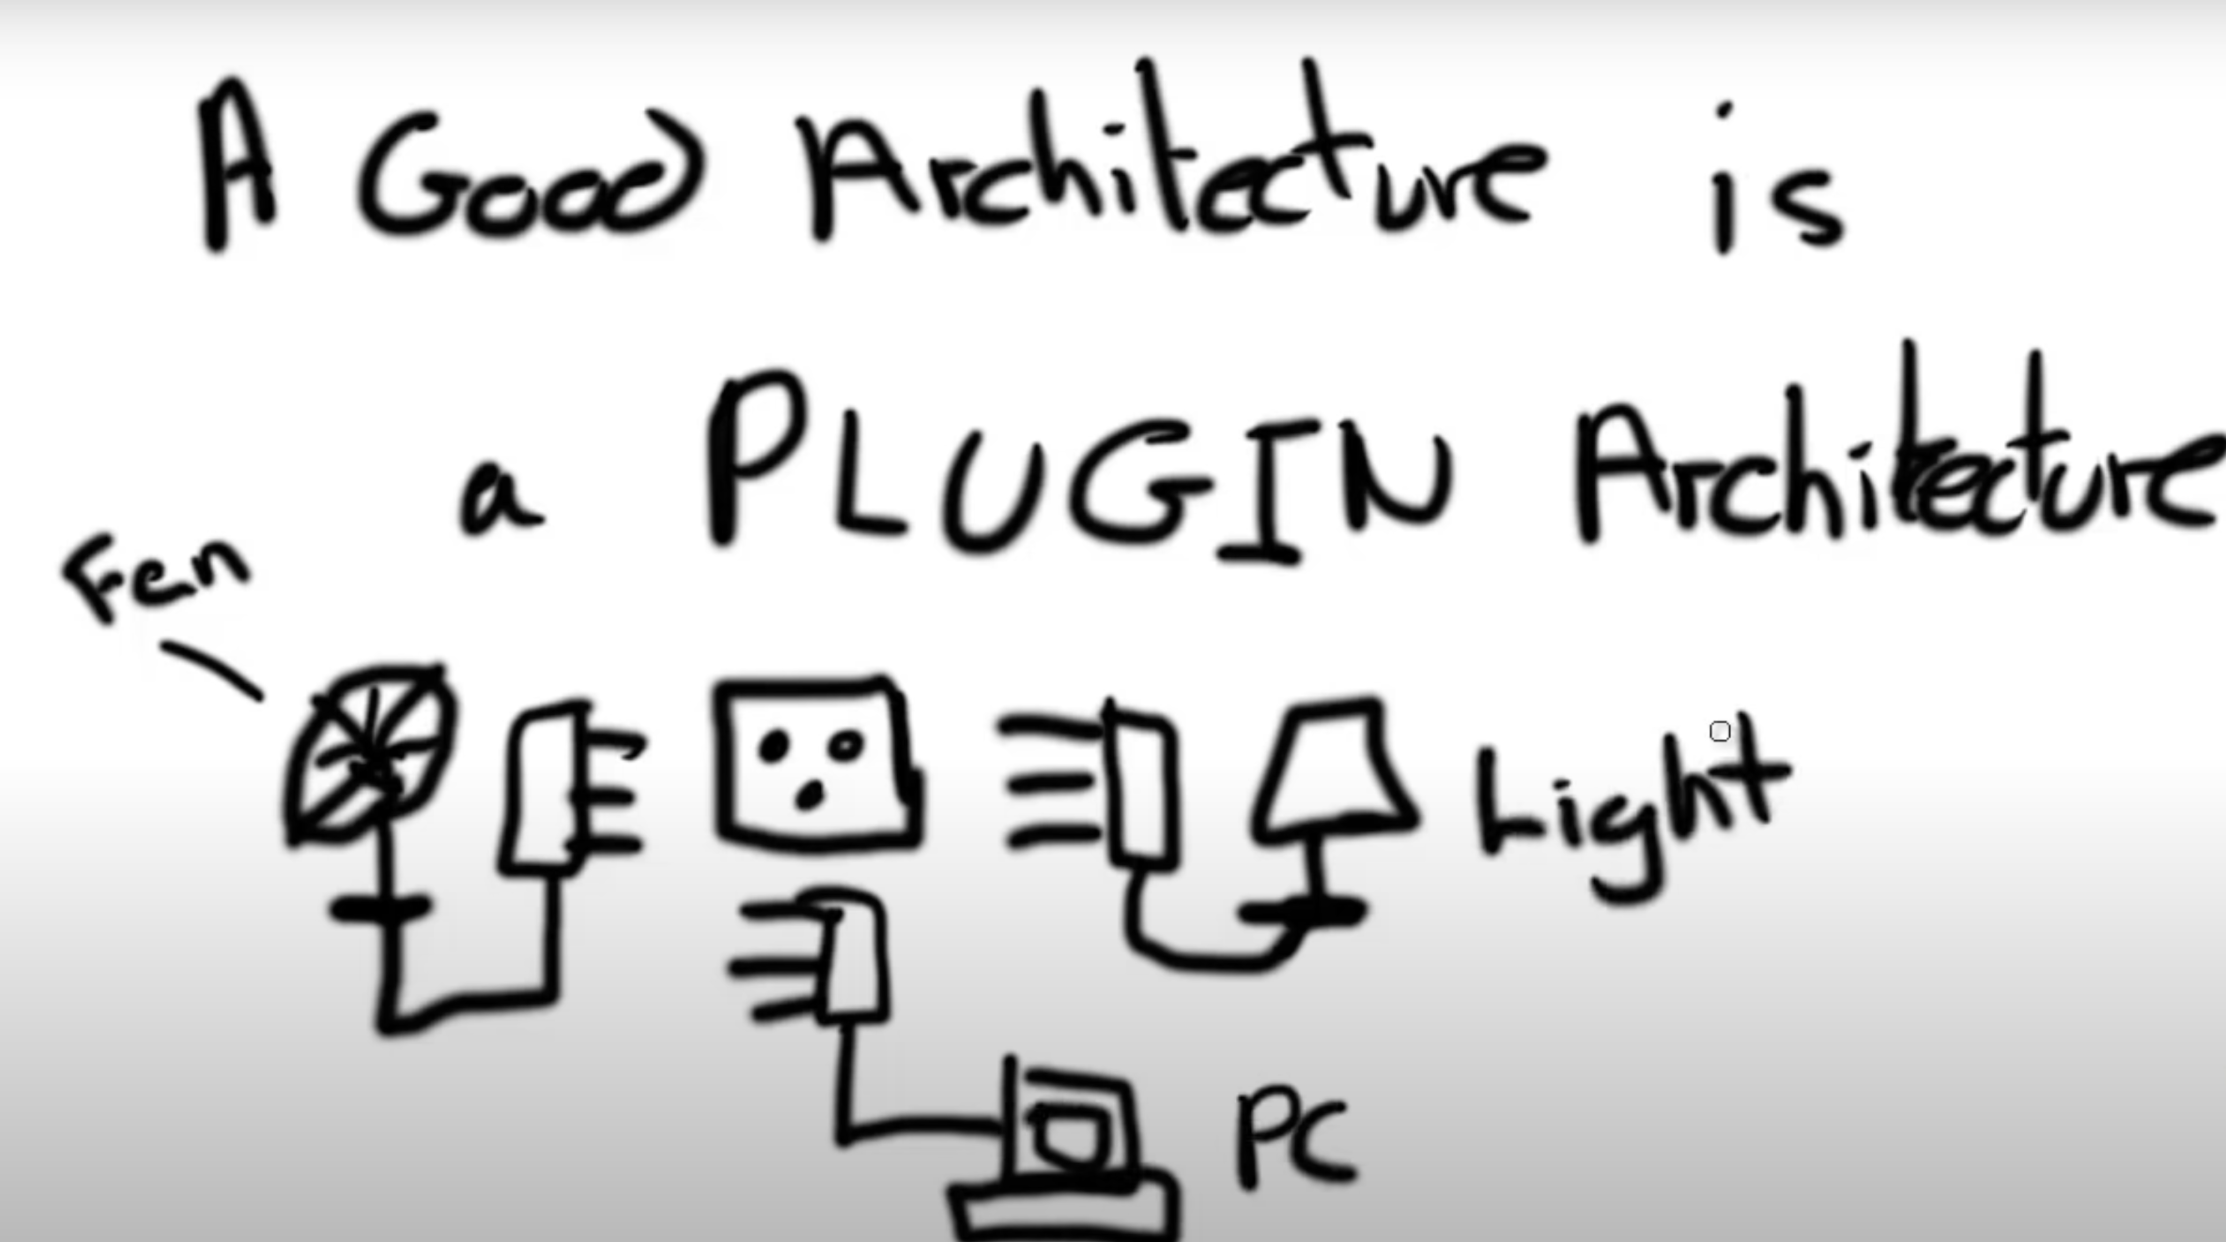 A Good Architecture is
a PLUGIN Architecture
Fan
Light
PC